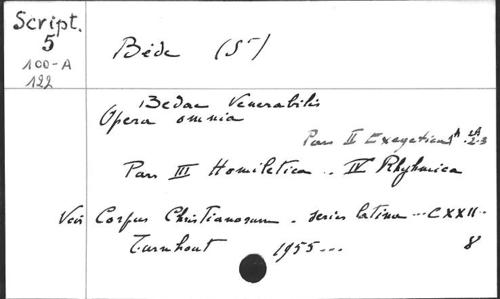 Script.
5
100-A
122
Bède (St)
Bedae Venerabilis
Opera omnia
Pars II Exegetica 2A.2.3
Pars III Homiletica .. IV Rhythmica
Voir Corpus Christianorum . series latina ... CXXII ..
Turnhout 1955 ... 8